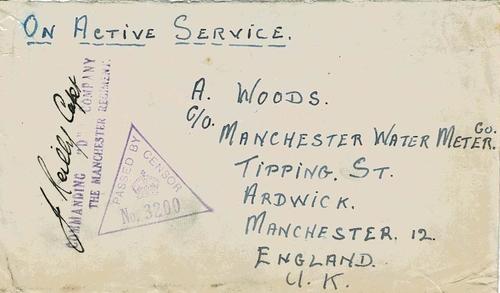 On Active Service.
A. Woods.
C/o.
Manchester Water Meter. Co.
Tipping. St.
Ardwick.
Manchester. 12.
England.
U. K.
J Reilly Capt
COMMANDING "D" COMPANY
THE MANCHESTER REGIMENT.
PASSED BY CENSOR
No. 3200